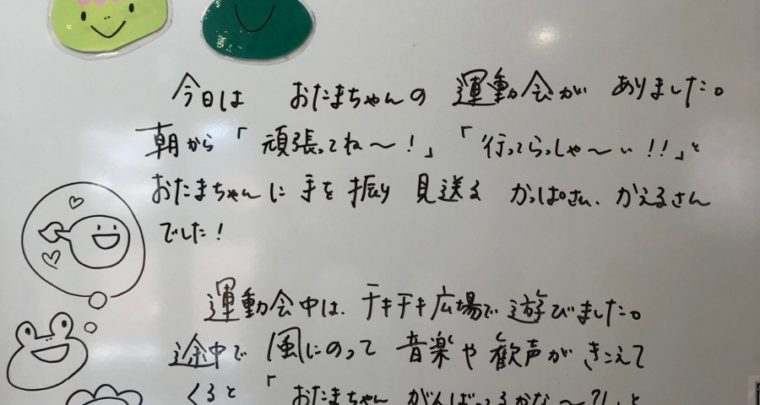 今日は おたまちゃんの 運動会が ありました。
朝から「頑張ってね〜!」「行ってらっしゃ〜い!!」と
おたまちゃんに 手を振り 見送る かっぱさん、かえるさん
でした!
運動会中は、チキチキ広場で 遊びました。
途中で 風にのって 音楽や 歓声が きこえて
くると「おたまちゃん がんばってるかな〜?!」と